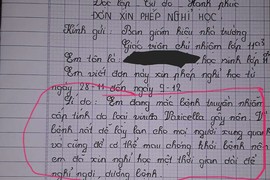 Độc lập - Tự do - Hạnh phúc
ĐƠN XIN PHÉP NGHỈ HỌC
Kính gửi: Ban giám hiệu nhà trường
Giáo viên chủ nhiệm lớp
Em tên là: học sinh lớp
Em viết đơn này xin phép nghỉ học từ
ngày 28-11 đến ngày 9-12
Lí do: Em đang mắc bệnh truyền nhiễm
cấp tính do loại virus Varicella gây nên. Vì
bệnh rất dễ lây lan cho mọi người xung quanh
và cũng để có thể mau chóng khỏi bệnh nên
em đã xin nghỉ học một thời gian dài để
nghỉ ngơi, dưỡng bệnh.